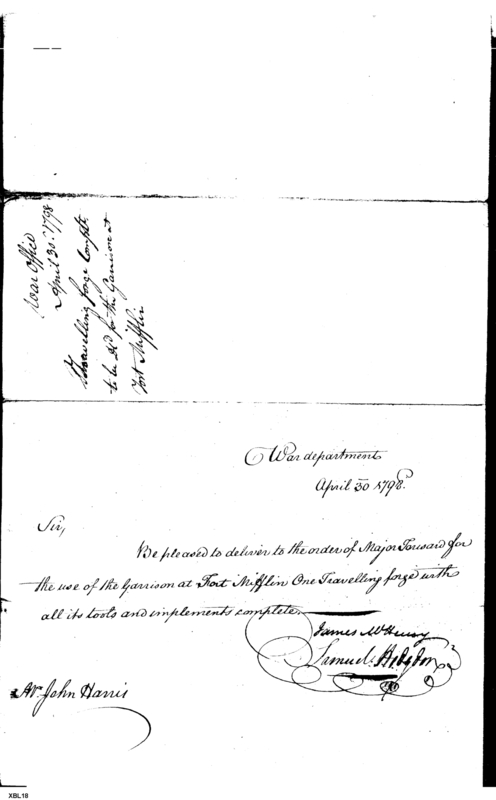 War Office
April 30. 1798
Travelling forge Complt.
to be dd for the Garrison at
Fort Mifflin
War department
April 30 1798.
Sir,
Be pleased to deliver to the order of Major Tousard for
the use of the Garrison at Fort Mifflin One Travelling forge with
all its tools and implements complete.
James McHenry
Samuel Hodgdon
Mr. John Harris
XBL18